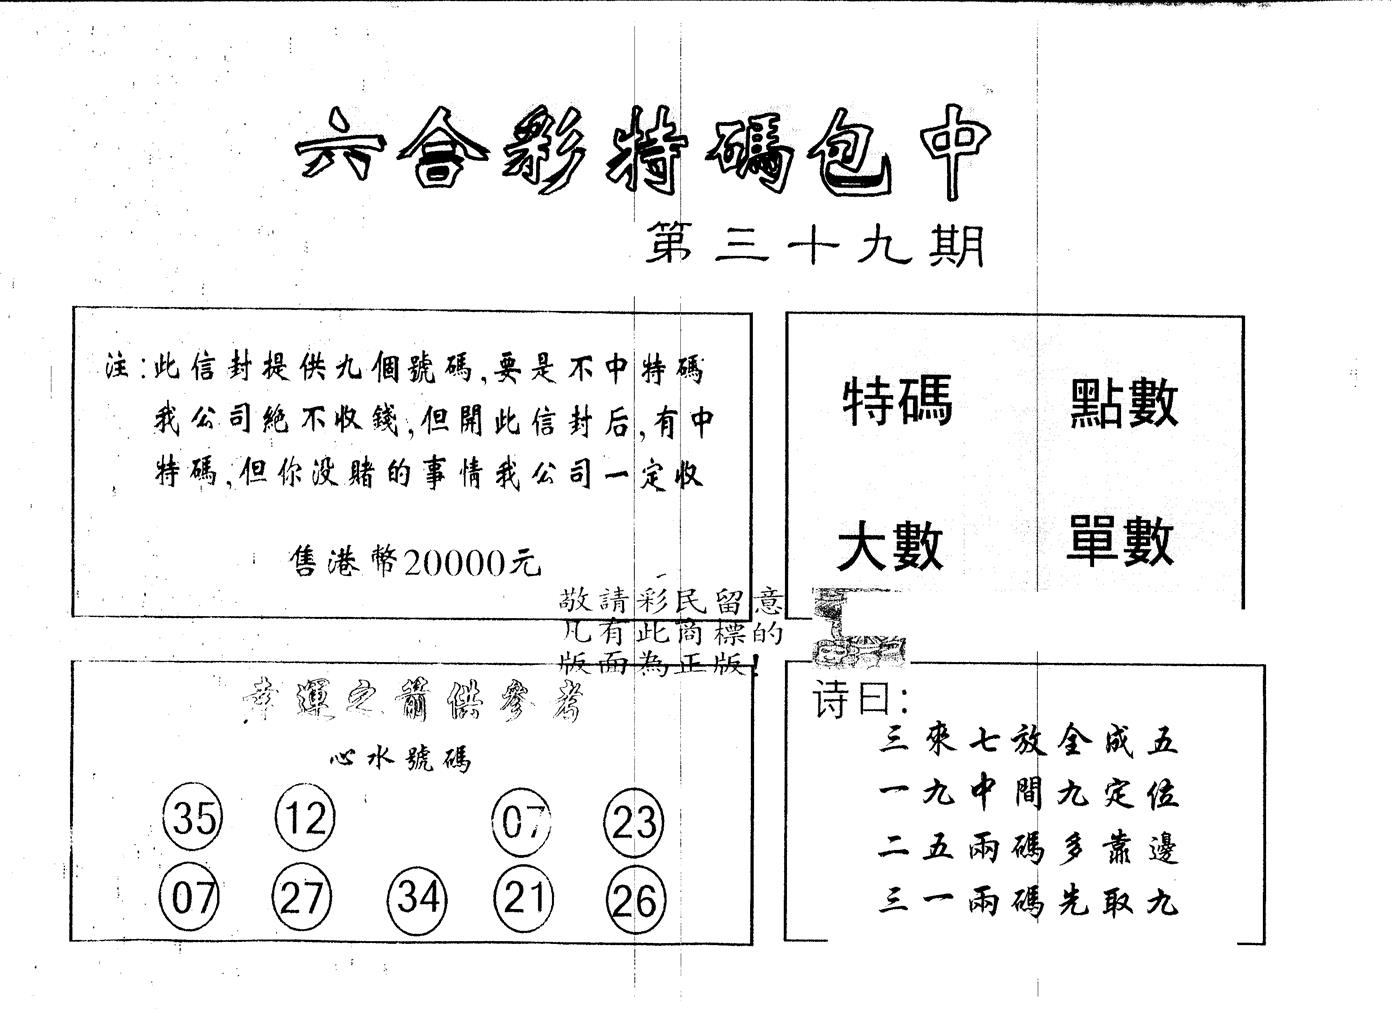 六合彩特碼包中
第三十九期
注:此信封提供九個號碼,要是不中特碼
我公司絕不收錢,但開此信封后,有中
特碼,但你没賭的事情我公司一定收
售港幣20000元
特碼 點數
大數 單數
敬請彩民留意
凡有此商標的
版面為正版!
幸運之箭供參考
心水號碼
35 12 07 23
07 27 34 21 26
诗曰:
三來七放全成五
一九中間九定位
二五兩碼多靠邊
三一兩碼先取九